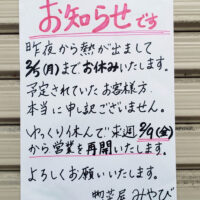 お知らせです
昨夜から熱が出まして
3/5(月)までお休みいたします。
予定されていたお客様方、
本当に申し訳ございません。
ゆっくり休んで来週3/9(金)
から営業を再開いたします。
よろしくお願いいたします。
惣菜屋 みやび